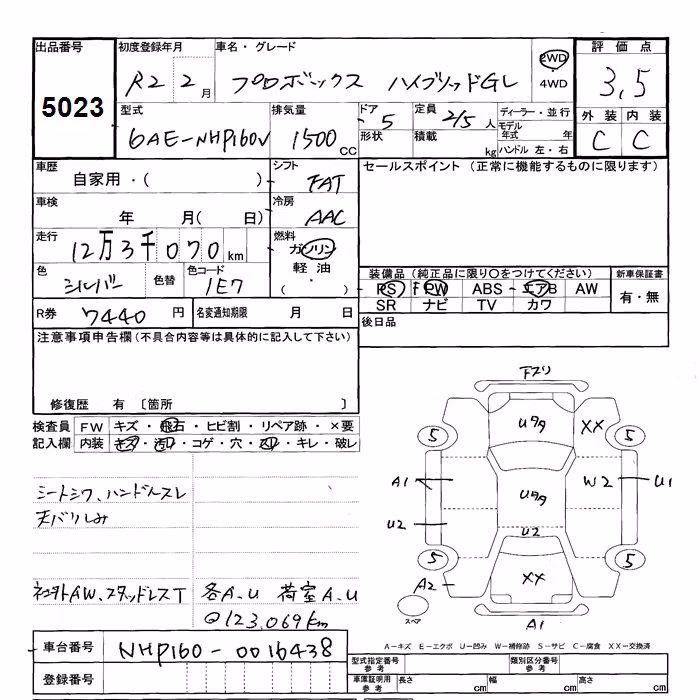 出品番号 初度登録年月 車名・グレード 2WD 4WD 評価点
5023 R2 2月 プロボックス ハイブリッドGL 3,5
型式 排気量 ドア 定員 ディーラー・並行 外装 内装
6AE-NHP160V 1500cc ・5 2/5人 モデル年式 年 C C
形状 積載 kg ハンドル 左・右
車歴 自家用・( ) シフト FAT セールスポイント (正常に機能するものに限ります)
車検 年 月( 日) 冷房 AAC
走行 12万3千070km 燃料 ガソリン 軽油 ( ・ )
色 シルバー 色替 色コード 1E7
装備品(純正品に限り○をつけてください) 新車保証書
PS PW ABS エアB AW 有・無
SR ナビ TV カワ
R券 7440円 名変通知期限 月 日 後日品
注意事項申告欄(不具合内容等は具体的に記入して下さい)
修復歴 有 〔箇所 〕
検査員 FW キズ・飛石・ヒビ割・リペア跡・×要
記入欄 内装 キズ・汚れ・コゲ・穴・スレ・キレ・破レ
シートシワ、ハンドルスレ
天バリしみ
各A.U 荷室A.U
@123,069km
車台番号 NHP160-0016438
登録番号
5 Uワク XX 5
A1 Uワク W2 U1
U2 U2
5 A2 XX 5
スペア A1
A-キズ E-エクボ U-凹み W-補修跡 S-サビ C-腐食 XX-交換済
型式指定番号 参考 類別区分番号 参考
車庫証明用 参考 長さ cm 幅 cm 高さ cm